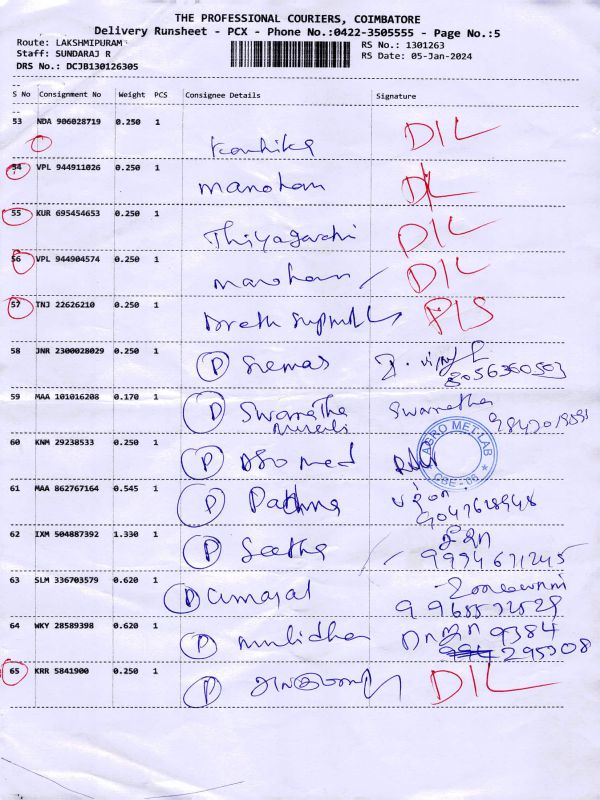 THE PROFESSIONAL COURIERS, COIMBATORE
Delivery Runsheet - PCX - Phone No.:0422-3505555 - Page No.:5
Route: LAKSHMIPURAM RS No.: 1301263
Staff: SUNDARAJ R RS Date: 05-Jan-2024
DRS No.: DCJB130126305
S No Consignment No Weight PCS Consignee Details Signature
53 NDA 906028719 0.250 1 DIL
54 VPL 944911026 0.250 1 manoham DIL
55 KUR 695454653 0.250 1 DIL
56 VPL 944904574 0.250 1 manoham DIL
57 TNJ 22626210 0.250 1 PLS
58 JNR 2300028029 0.250 1 P 8056360503
59 MAA 101016208 0.170 1 P Swarnatha Swarnatha
60 KNM 29238533 0.250 1 P AGRO METLAB CBE-06
61 MAA 862767164 0.545 1 P Padma பத்மா
9047628948
62 IXM 504887392 1.330 1 P Seetha
9994671245
63 SLM 336703579 0.620 1 P
9965572529
64 WKY 28589398 0.620 1 P 9384
295308
65 KRR 5841900 0.250 1 P DIL